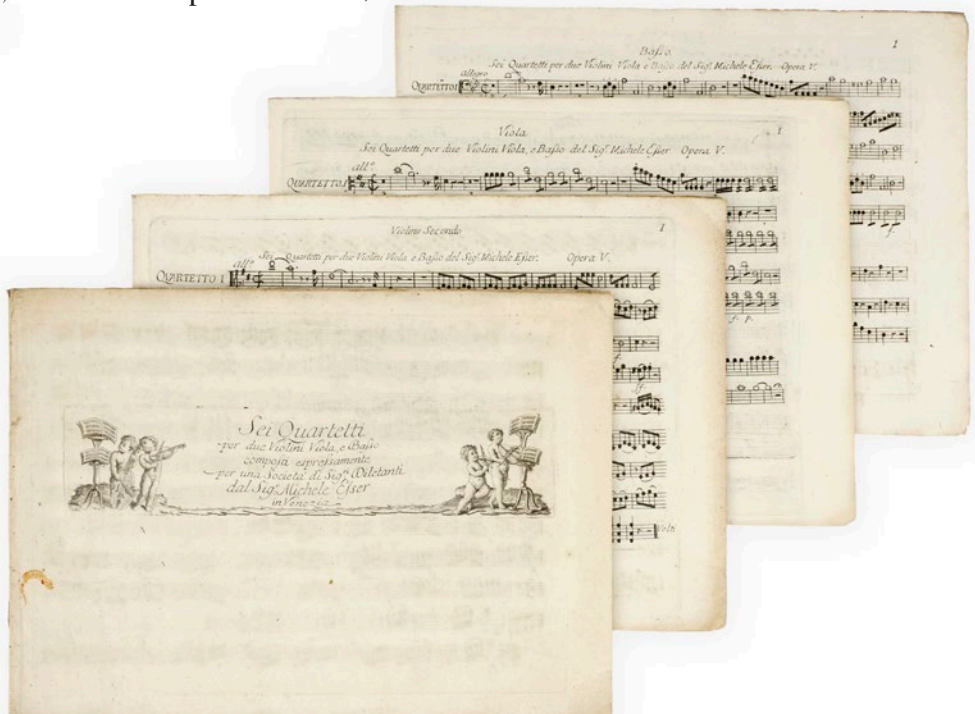 Basso.
1
Sei Quartetti per due Violini Viola e Basso del Sigr. Michele Esser. Opera V.
Allegro
QUARTETTO I
f.
Viola
1
Sei Quartetti per due Violini Viola, e Basso del Sigr. Michele Esser Opera V.
all.o
QUARTETTO I
f. p.
Violino Secondo
1
Sei Quartetti per due Violini Viola e Basso del Sigr. Michele Esser. Opera V.
all.o
QUARTETTO I
f
Volti
Sei Quartetti
per due Violini Viola, e Basso
composti espressamente
per una Società di Sigri. Diletanti
dal Sigr. Michele Esser
in Venezia